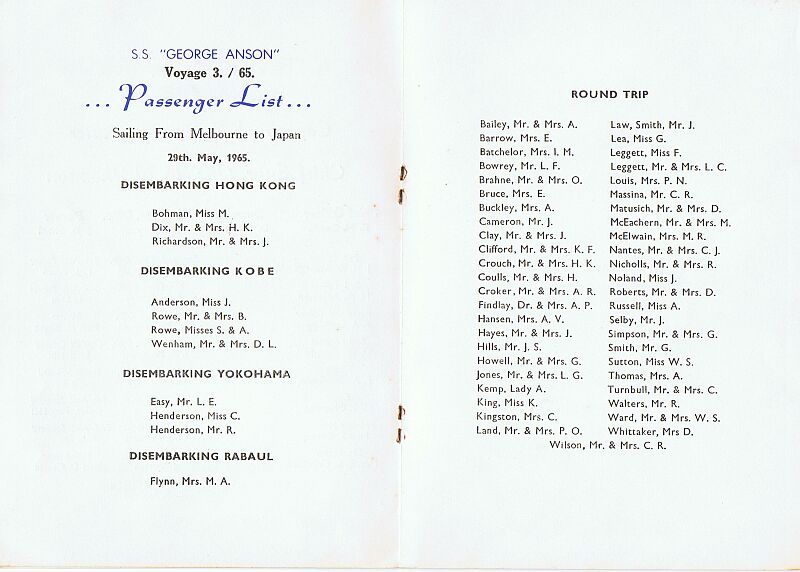 S.S. "GEORGE ANSON"
Voyage 3. / 65.
... Passenger List ...
Sailing From Melbourne to Japan
29th. May, 1965.
DISEMBARKING HONG KONG
Bohman, Miss M.
Dix, Mr. & Mrs. H. K.
Richardson, Mr. & Mrs. J.
DISEMBARKING KOBE
Anderson, Miss J.
Rowe, Mr. & Mrs. B.
Rowe, Misses S. & A.
Wenham, Mr. & Mrs. D. L.
DISEMBARKING YOKOHAMA
Easy, Mr. L. E.
Henderson, Miss C.
Henderson, Mr. R.
DISEMBARKING RABAUL
Flynn, Mrs. M. A.
ROUND TRIP
Bailey, Mr. & Mrs. A.
Barrow, Mrs. E.
Batchelor, Mrs. I. M.
Bowrey, Mr. L. F.
Brahne, Mr. & Mrs. O.
Bruce, Mrs. E.
Buckley, Mrs. A.
Cameron, Mr. J.
Clay, Mr. & Mrs. J.
Clifford, Mr. & Mrs. K. F.
Crouch, Mr. & Mrs. H. K.
Coulls, Mr. & Mrs. H.
Croker, Mr. & Mrs. A. R.
Findlay, Dr. & Mrs. A. P.
Hansen, Mrs. A. V.
Hayes, Mr. & Mrs. J.
Hills, Mr. J. S.
Howell, Mr. & Mrs. G.
Jones, Mr. & Mrs. L. G.
Kemp, Lady A.
King, Miss K.
Kingston, Mrs. C.
Land, Mr. & Mrs. P. O.
Law, Smith, Mr. J.
Lea, Miss G.
Leggett, Miss F.
Leggett, Mr. & Mrs. L. C.
Louis, Mrs. P. N.
Massina, Mr. C. R.
Matusich, Mr. & Mrs. D.
McEachern, Mr. & Mrs. M.
McElwain, Mrs. M. R.
Nantes, Mr. & Mrs. C. J.
Nicholls, Mr. & Mrs. R.
Noland, Miss J.
Roberts, Mr. & Mrs. D.
Russell, Miss A.
Selby, Mr. J.
Simpson, Mr. & Mrs. G.
Smith, Mr. G.
Sutton, Miss W. S.
Thomas, Mrs. A.
Turnbull, Mr. & Mrs. C.
Walters, Mr. R.
Ward, Mr. & Mrs. W. S.
Whittaker, Mrs D.
Wilson, Mr. & Mrs. C. R.